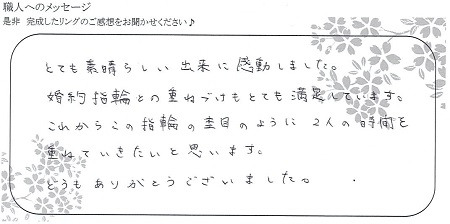 職人へのメッセージ
是非 完成したリングのご感想をお聞かせください♪
とても素晴らしい出来に感動しました。
婚約指輪との重ねづけもとても満足しています。
これからこの指輪の杢目のように2人の時間を
重ねていきたいと思います。
どうもありがとうございました。